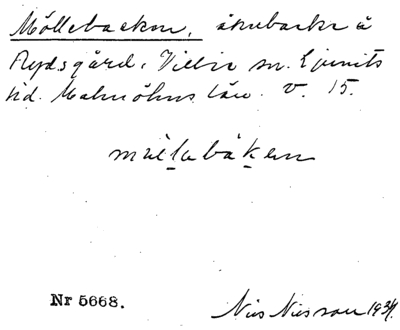 Möllebacken, åkerbacke å
Rydsgård, Villie sn. Ljunits
hd. Malmöhus län. V. 15.
mɯ̈labåken
Nr 5668.
Nils Nilsson 1934.